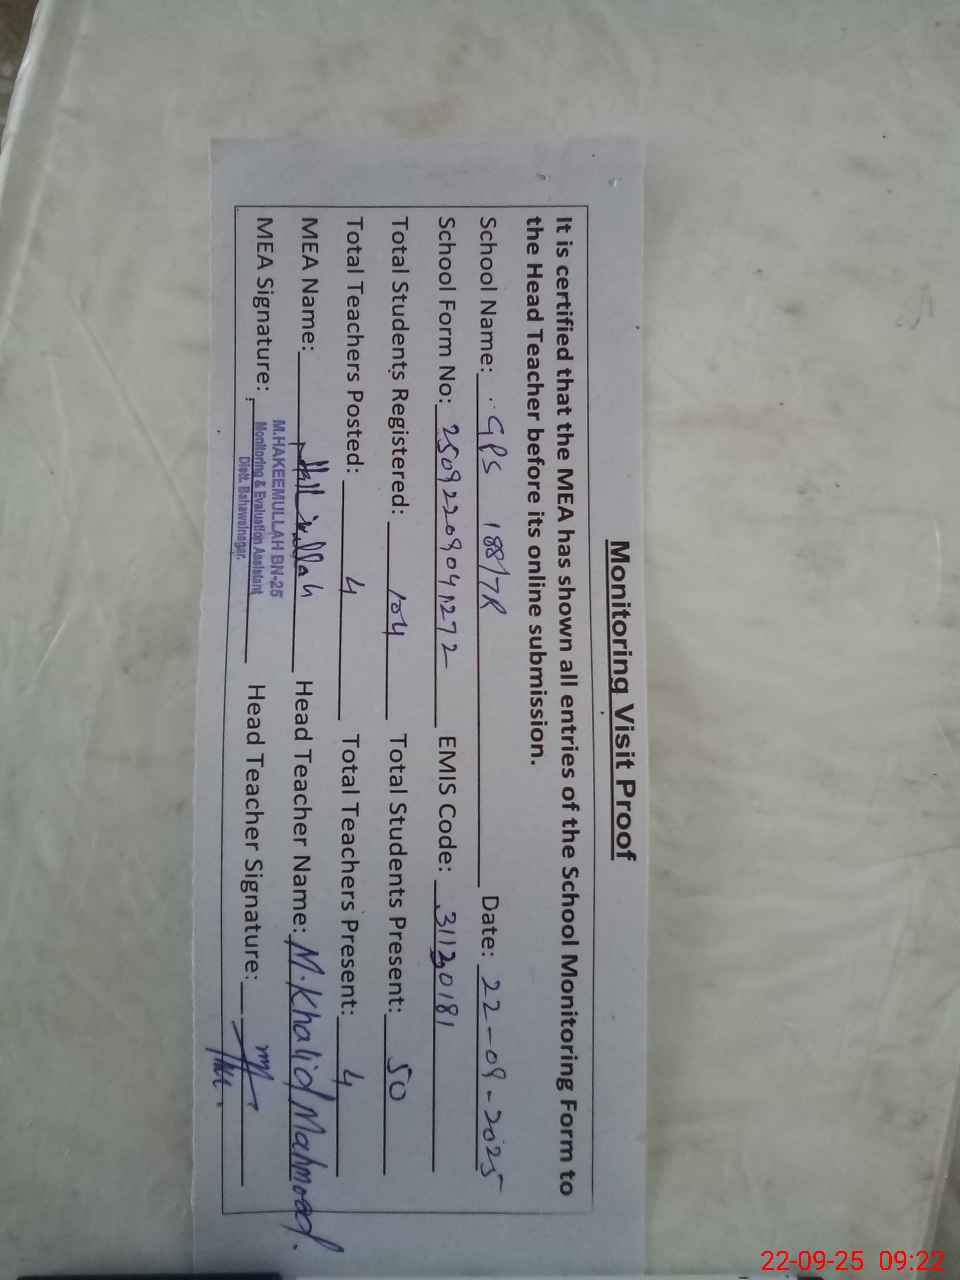 Monitoring Visit Proof
It is certified that the MEA has shown all entries of the School Monitoring Form to
the Head Teacher before its online submission.
School Name: GPS 188/7R Date: 22-09-2025
School Form No: 25092209041272 EMIS Code: 31120181
Total Students Registered: 104 Total Students Present: 50
Total Teachers Posted: 4 Total Teachers Present: 4
MEA Name: Head Teacher Name: M. Khalid Mahmood.
MEA Signature: Head Teacher Signature:
M.HAKEEMULLAH BN-25
Monitoring & Evaluation Assistant
Distt. Bahawalnagar.
22-09-25 09:22